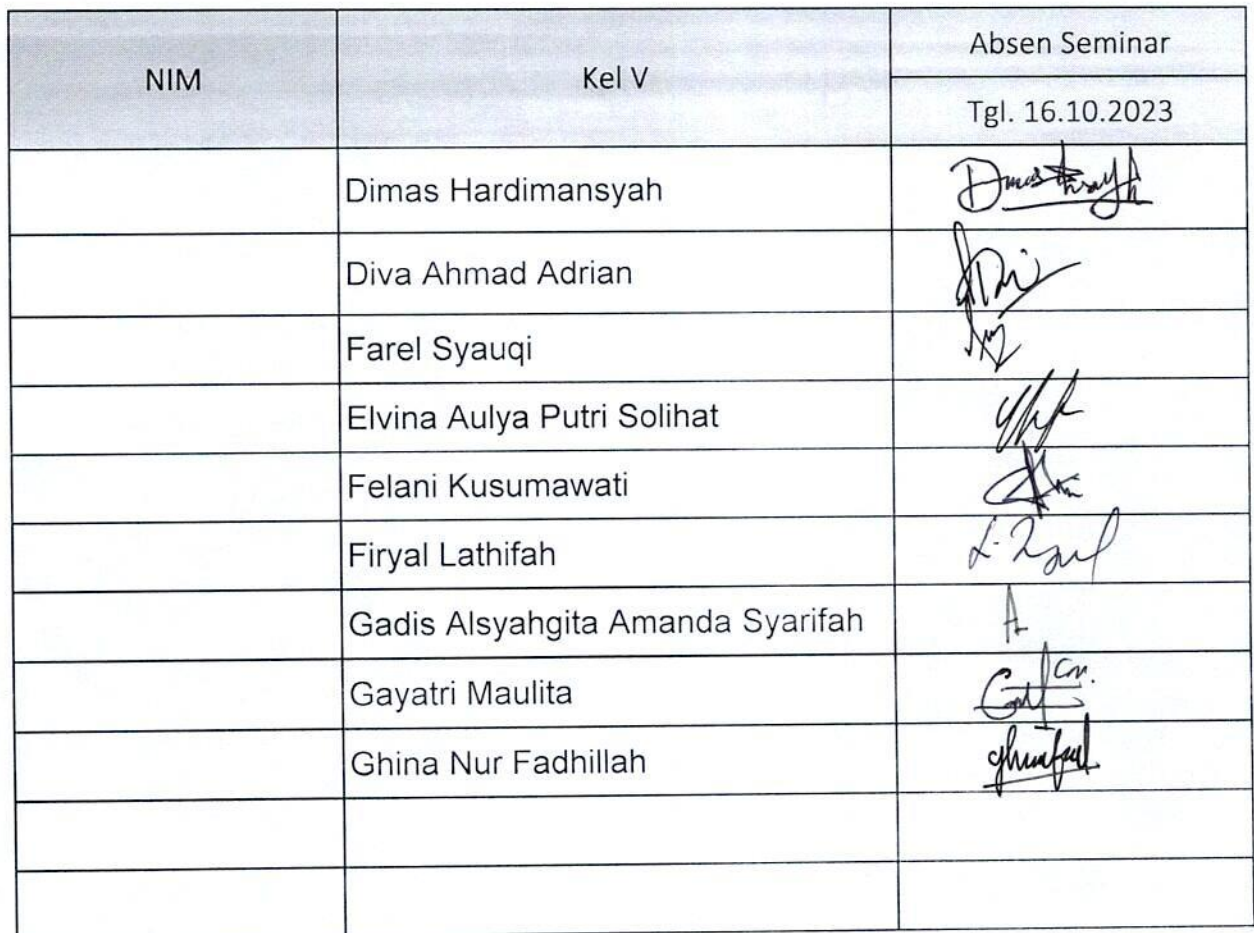 NIM Kel V Absen Seminar
Tgl. 16.10.2023
Dimas Hardimansyah
Diva Ahmad Adrian
Farel Syauqi
Elvina Aulya Putri Solihat
Felani Kusumawati
Firyal Lathifah
Gadis Alsyahgita Amanda Syarifah
Gayatri Maulita
Ghina Nur Fadhillah